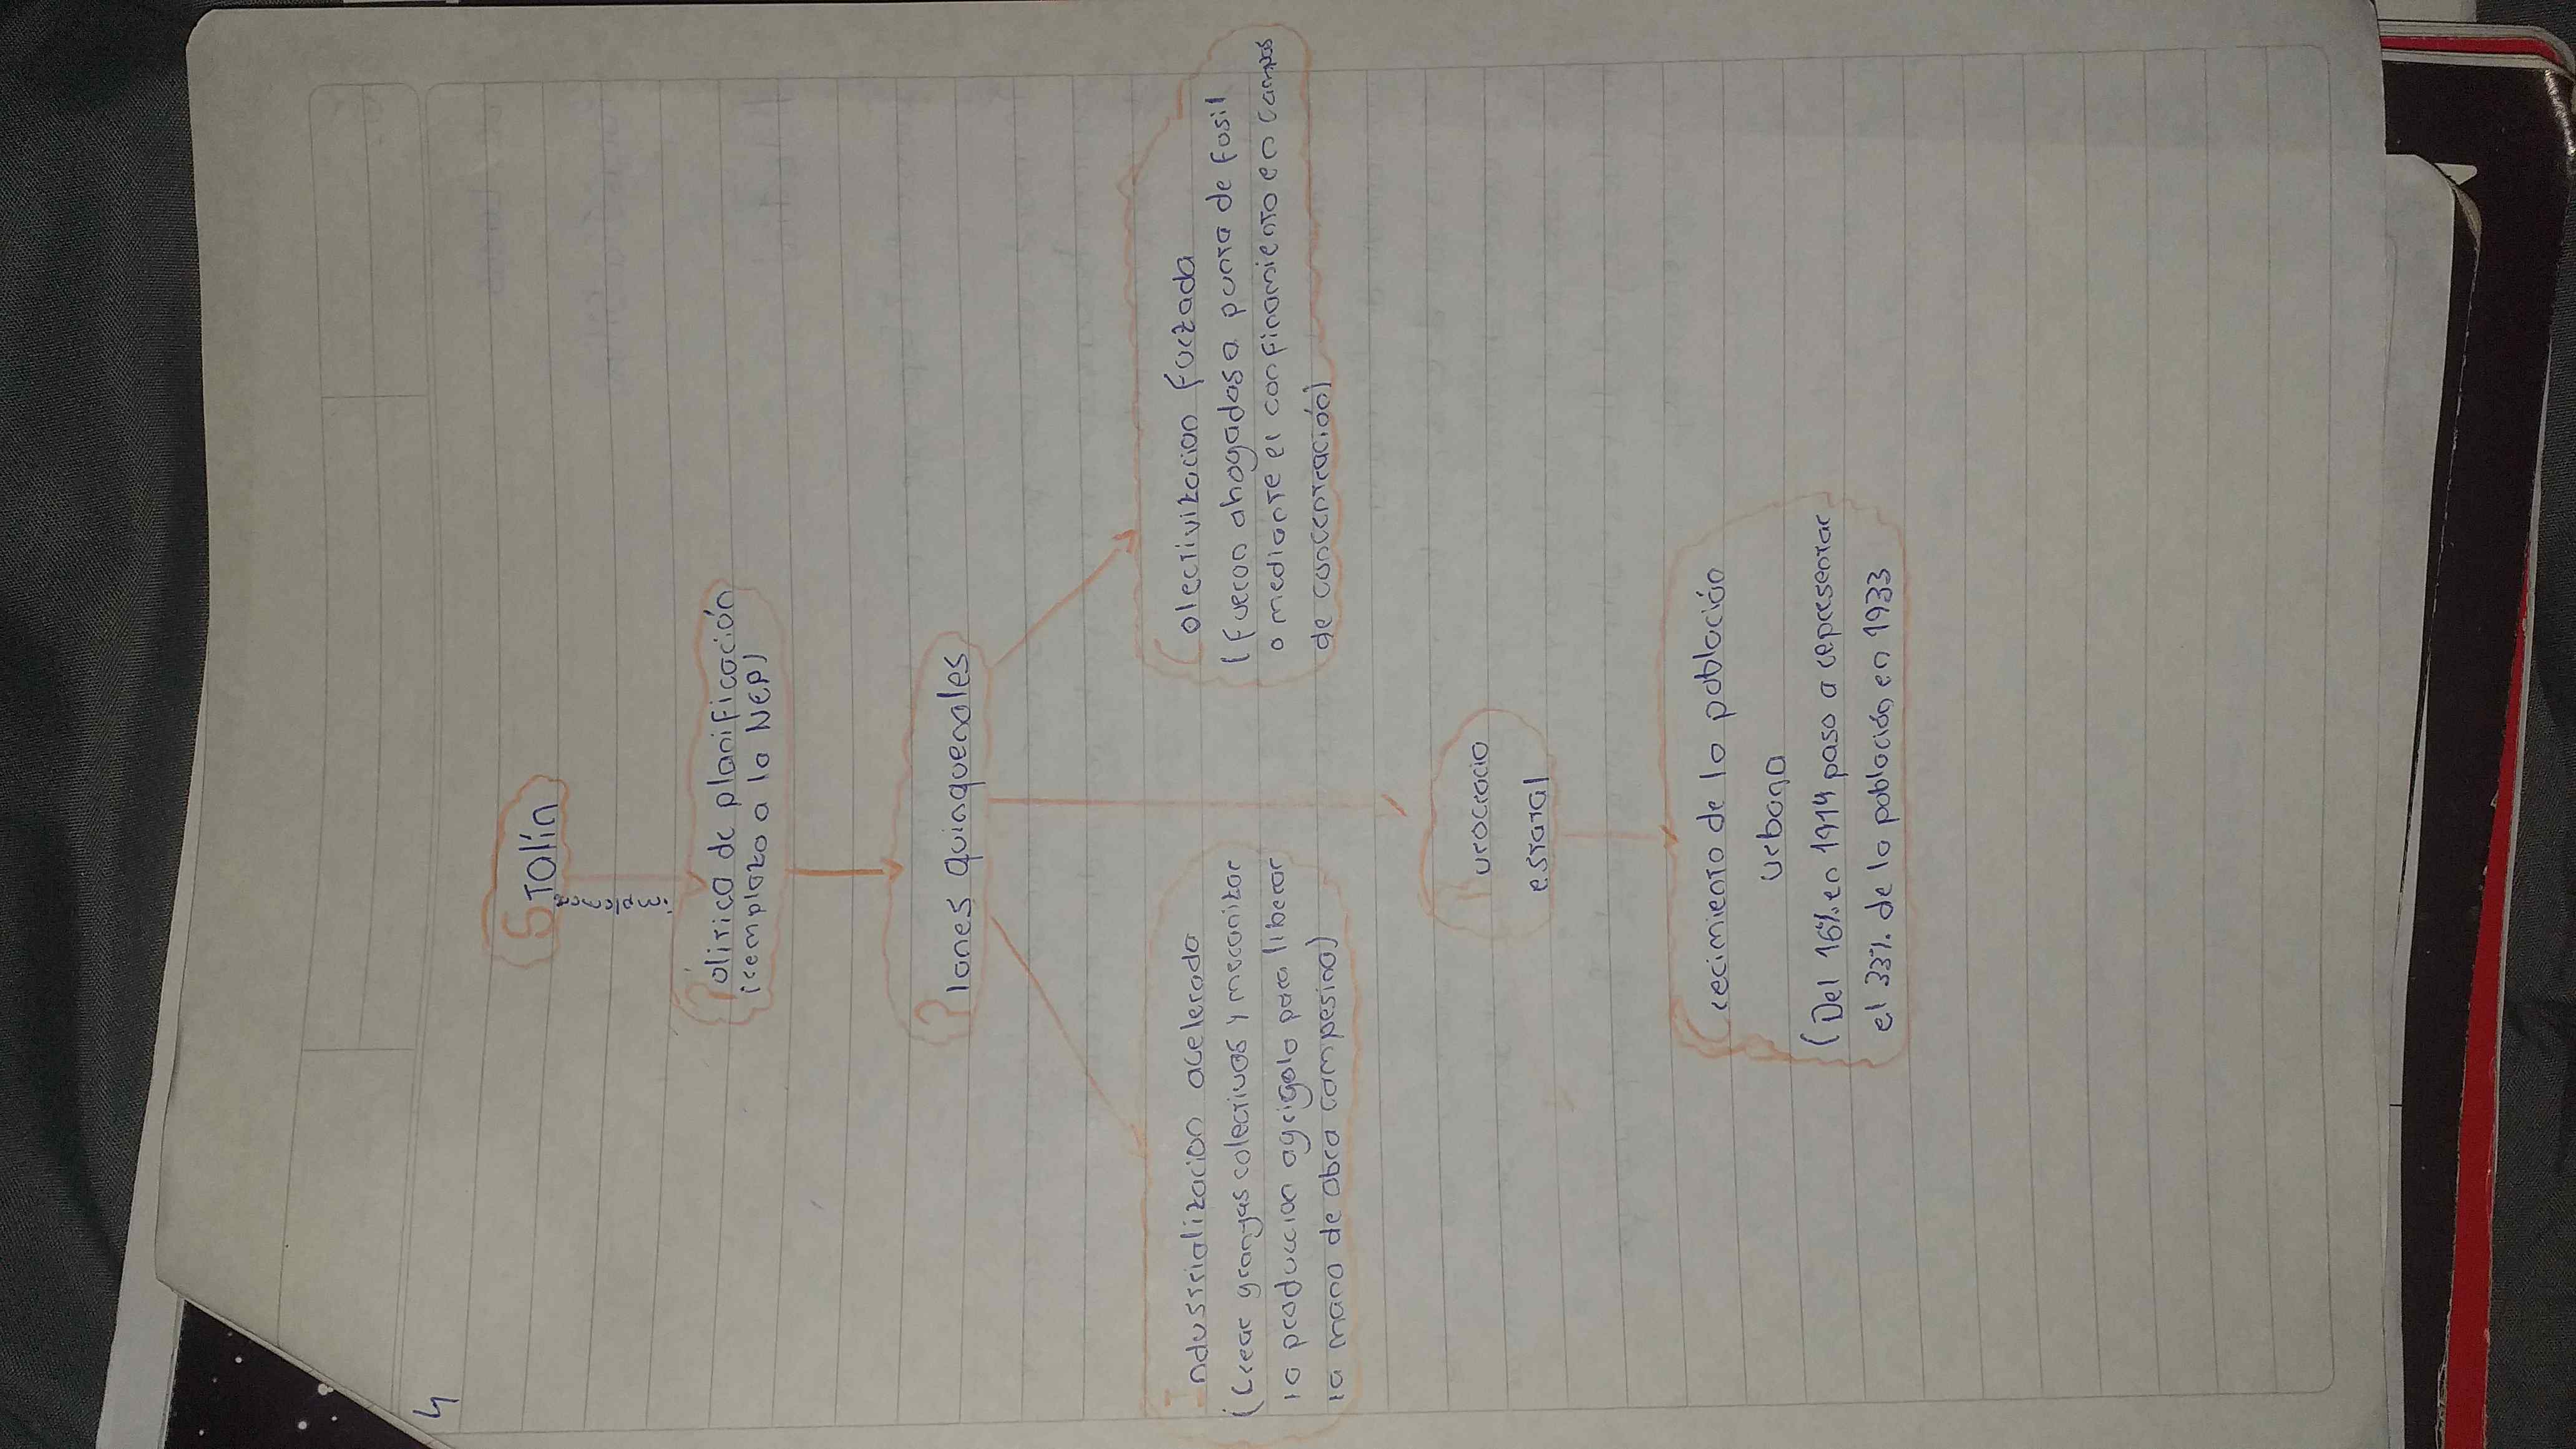 4
Stalín
implanta
Política de planificación
(remplazo a la NEP)
Planes quinquenales
Industrialización acelerada
(Crear granjas colectivas y mecanizar
la produccion agrigola para liberar
la mano de obra campesina)
Colectivización forzada
(fueron ahogadas a punta de fosil
o mediante el confinamiento en campos
de concentración)
Burocracia
estatal
Crecimiento de la población
urbana
(Del 16% en 1914 paso a representar
el 33% de la población en 1933